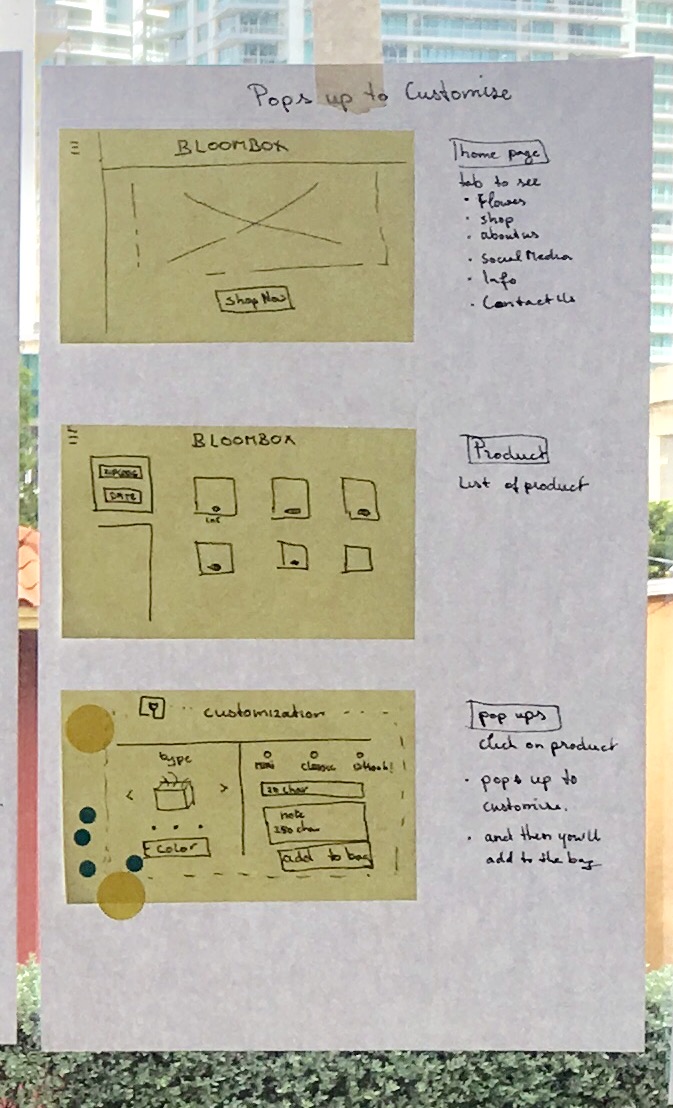 Pops up to Customise
BLOOMBOX
Shop Now
home page
tab to see
• Flowes
• shop
• about us
• Social Media
• Info
• Contact Us
BLOOMBOX
DATE
Product
List of product
customization
type
MINI
Classic
Color
20 char
note
250 char
add to bag
pop ups
click on product
• pops up to
customise.
• and then you'll
add to the bag